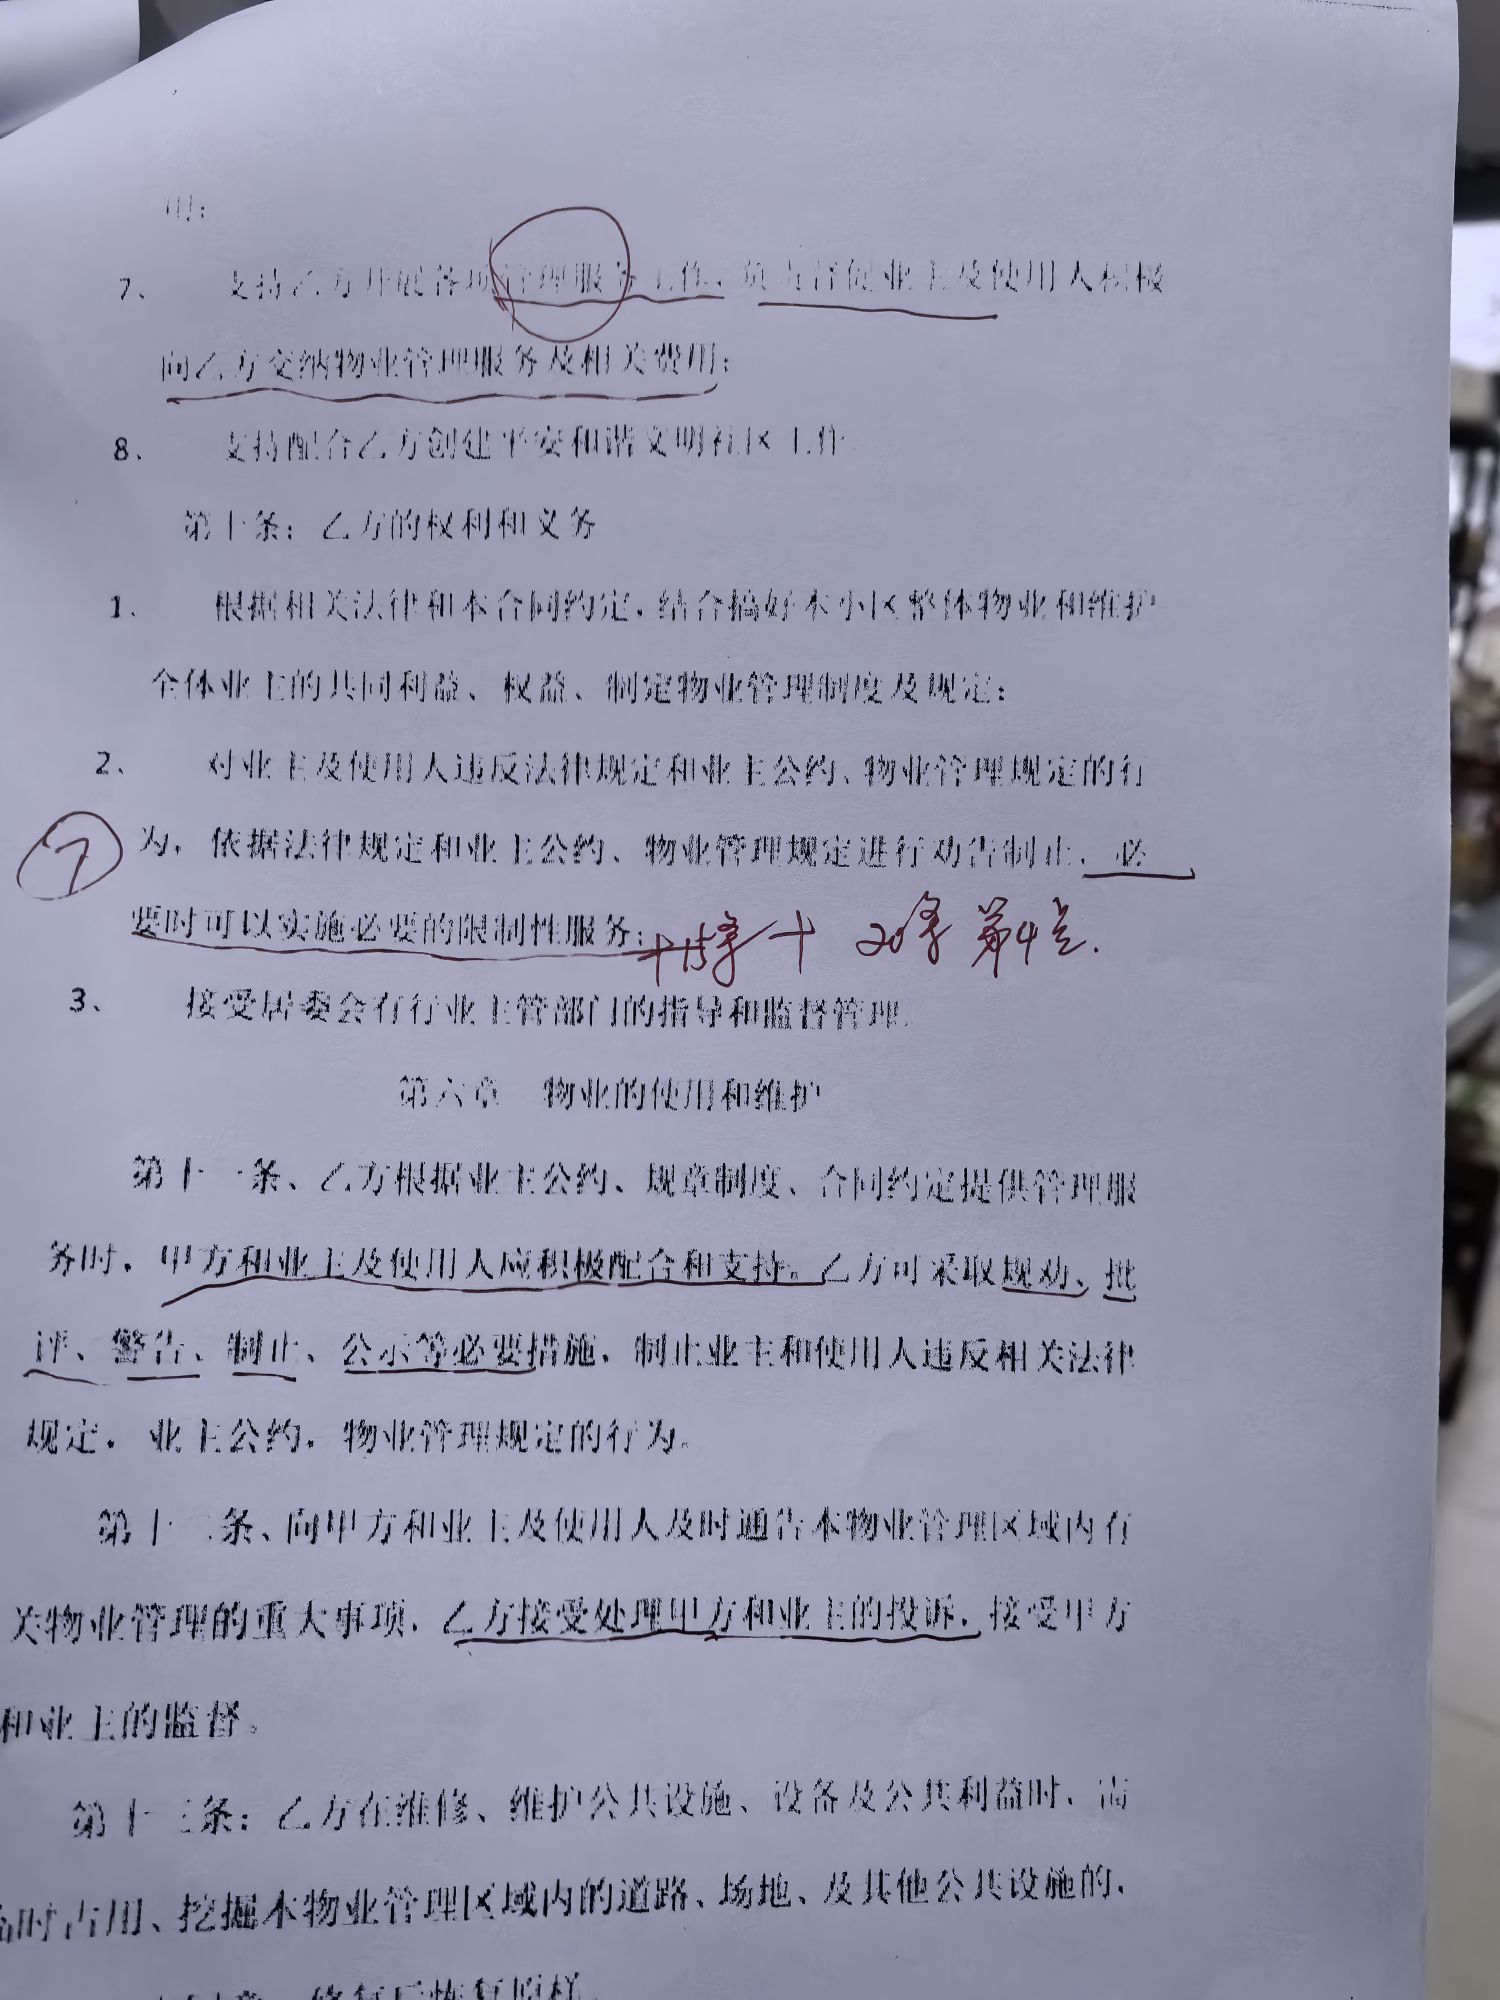 用;
7、 支持乙方开展各项管理服务工作,负责督促业主及使用人积极
向乙方交纳物业管理服务及相关费用;
8、 支持配合乙方创建平安和谐文明社区工作
第十条:乙方的权利和义务
1、 根据相关法律和本合同约定,结合搞好本小区整体物业和维护
全体业主的共同利益、权益、制定物业管理制度及规定;
2、 对业主及使用人违反法律规定和业主公约、物业管理规定的行
⑦ 为,依据法律规定和业主公约、物业管理规定进行劝告制止,必
要时可以实施必要的限制性服务; +15条+ 20条 第4点.
3、 接受居委会有行业主管部门的指导和监督管理.
第六章 物业的使用和维护
第十一条、乙方根据业主公约、规章制度、合同约定提供管理服
务时,甲方和业主及使用人应积极配合和支持。乙方可采取规劝、批
评、警告、制止、公示等必要措施,制止业主和使用人违反相关法律
规定,业主公约,物业管理规定的行为。
第十二条、向甲方和业主及使用人及时通告本物业管理区域内有
关物业管理的重大事项,乙方接受处理甲方和业主的投诉,接受甲方
和业主的监督。
第十三条:乙方在维修、维护公共设施、设备及公共利益时,需
临时占用、挖掘本物业管理区域内的道路、场地、及其他公共设施的,
修复后恢复原样